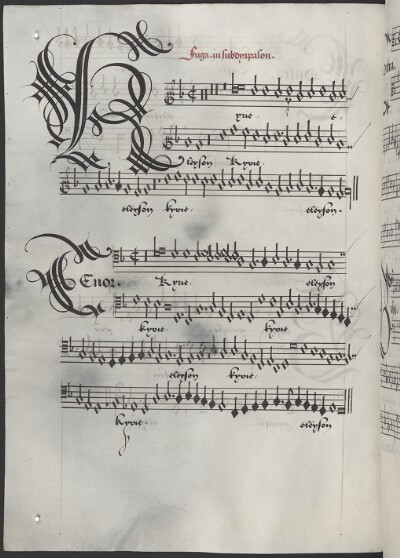 Fuga in subdyapason.
K yrie e
leyson Kyrie
eleyson kyrie eleyson.
Tenor. Kyrie eleyson
kyrie kyrie
eleyson kyrie
Kyrie eleyson